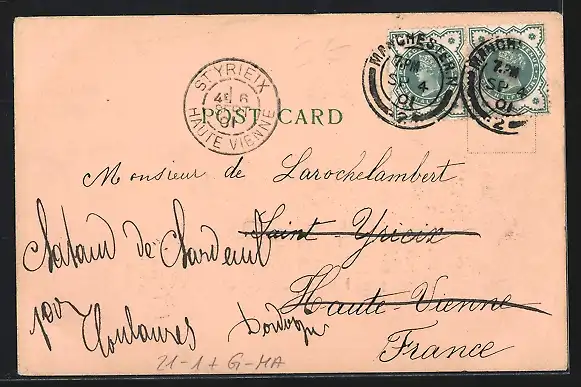 MANCHESTER
7.PM
SP 4
01
2
MANCHE
7.PM
SP 4
01
2
ST YRIEIX
6
SEPT
01
HAUTE VIENNE
POST CARD
Monsieur de Larochelambert
Saint Yrieix
Haute-Vienne
France
de
par Coulaures Dordogne
21-1+ G-MA